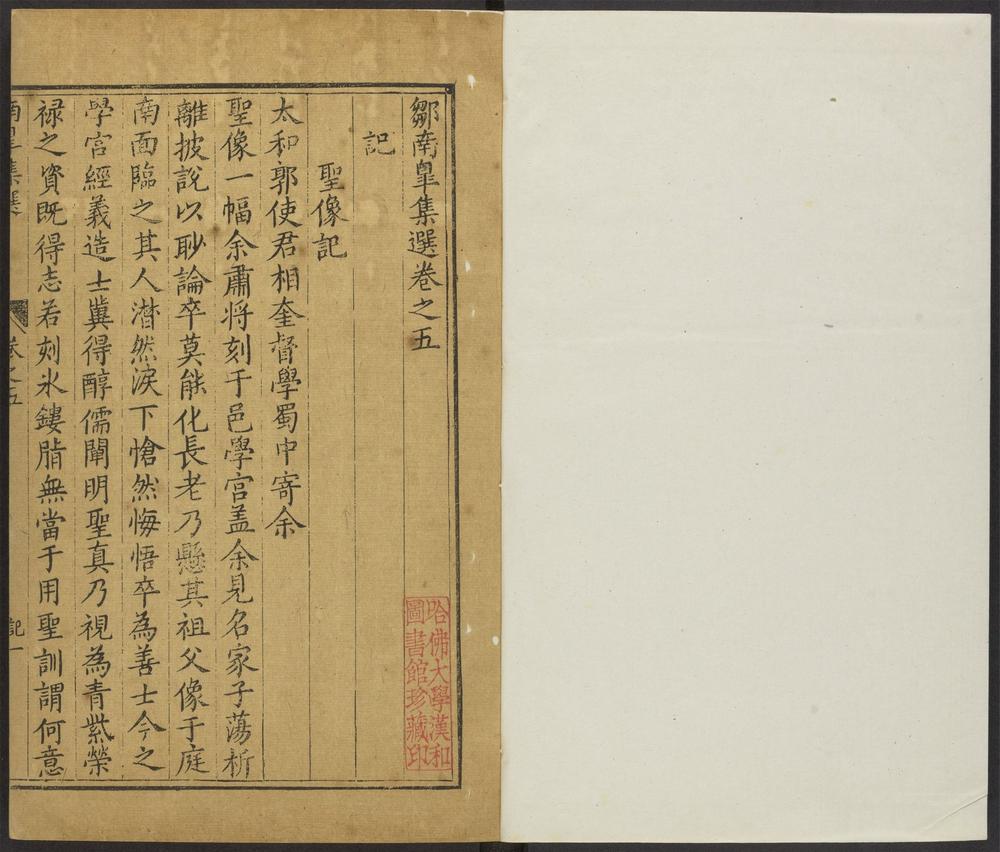 鄒南臯集選卷之五
記
聖像記
太和郭使君相奎督學蜀中寄余
聖像一幅余肅將刻于邑學宮盖余見名家子蕩析
離披說以眇論卒莫能化長老乃懸其祖父像于庭
南面臨之其人潸然淚下愴然悔悟卒為善士今之
學宮經義造士冀得醇儒闡明聖真乃視為青紫榮
禄之資既得志若刻氷鏤脂無當于用聖訓謂何意
南臯集選
卷之五
記一
哈佛大學漢和
圖書館珍藏印